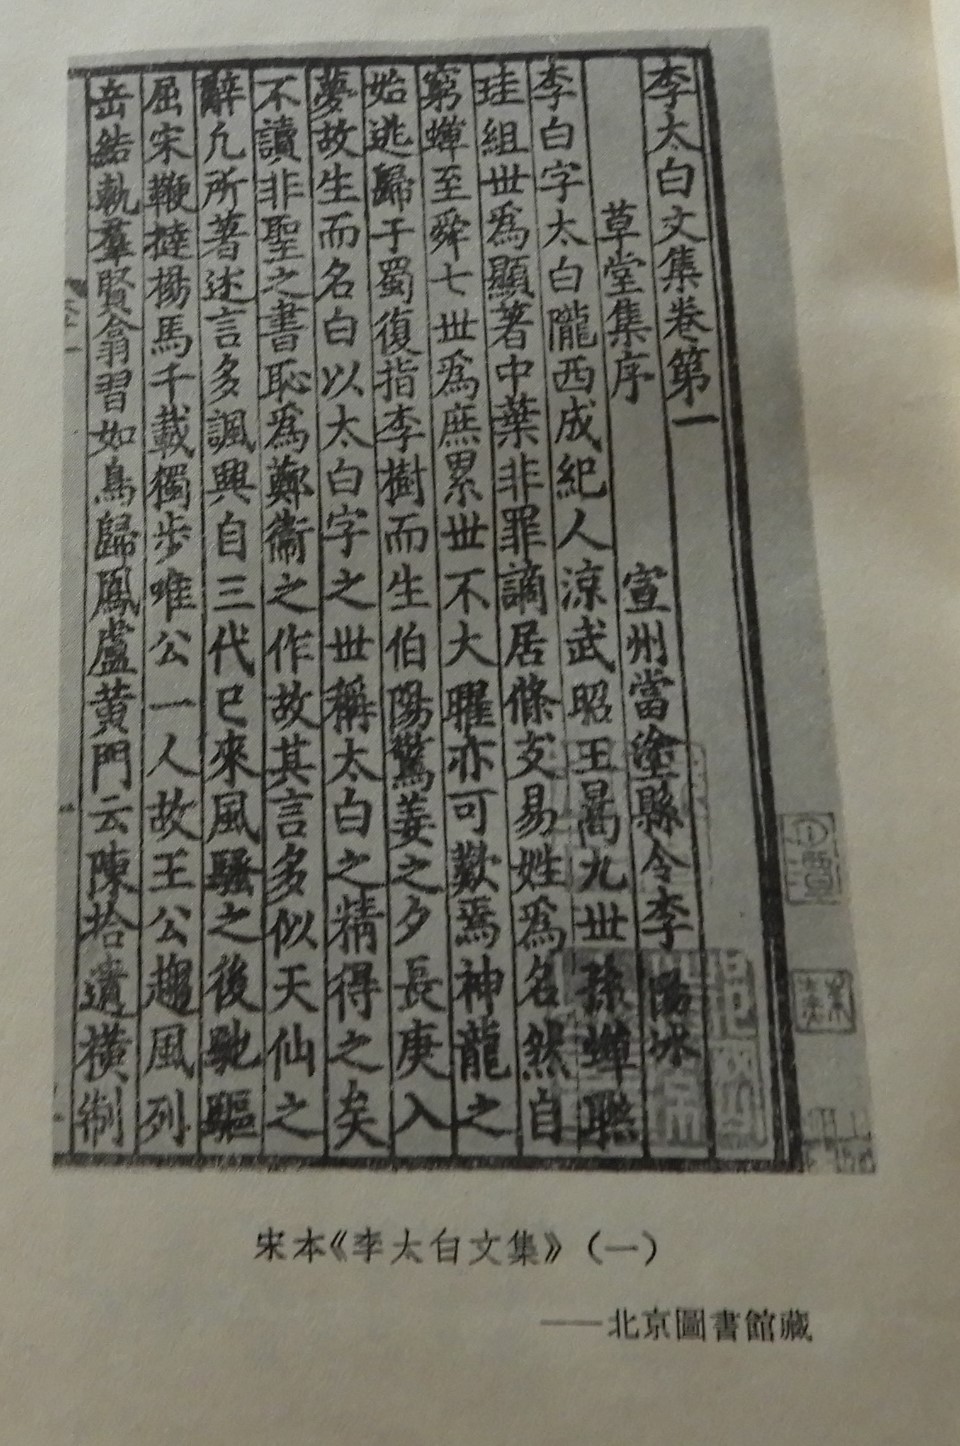 李太白文集卷第一
草堂集序 宣州當塗縣令李陽冰
李白字太白隴西成紀人涼武昭王暠九世孫蟬聯
珪組世爲顯著中葉非罪謫居條支易姓爲名然自
窮蟬至舜七世爲庶累世不大曜亦可歎焉神龍之
始逃歸于蜀復指李樹而生伯陽驚姜之夕長庚入
夢故生而名白以太白字之世稱太白之精得之矣
不讀非聖之書恥爲鄭衞之作故其言多似天仙之
辭凢所著述言多諷興自三代已來風騷之後馳驅
屈宋鞭撻揚馬千載獨步唯公一人故王公趨風列
岳結軌羣賢翕習如鳥歸鳳盧黄門云陳拾遺橫制
宋本《李太白文集》（一）
——北京圖書館藏